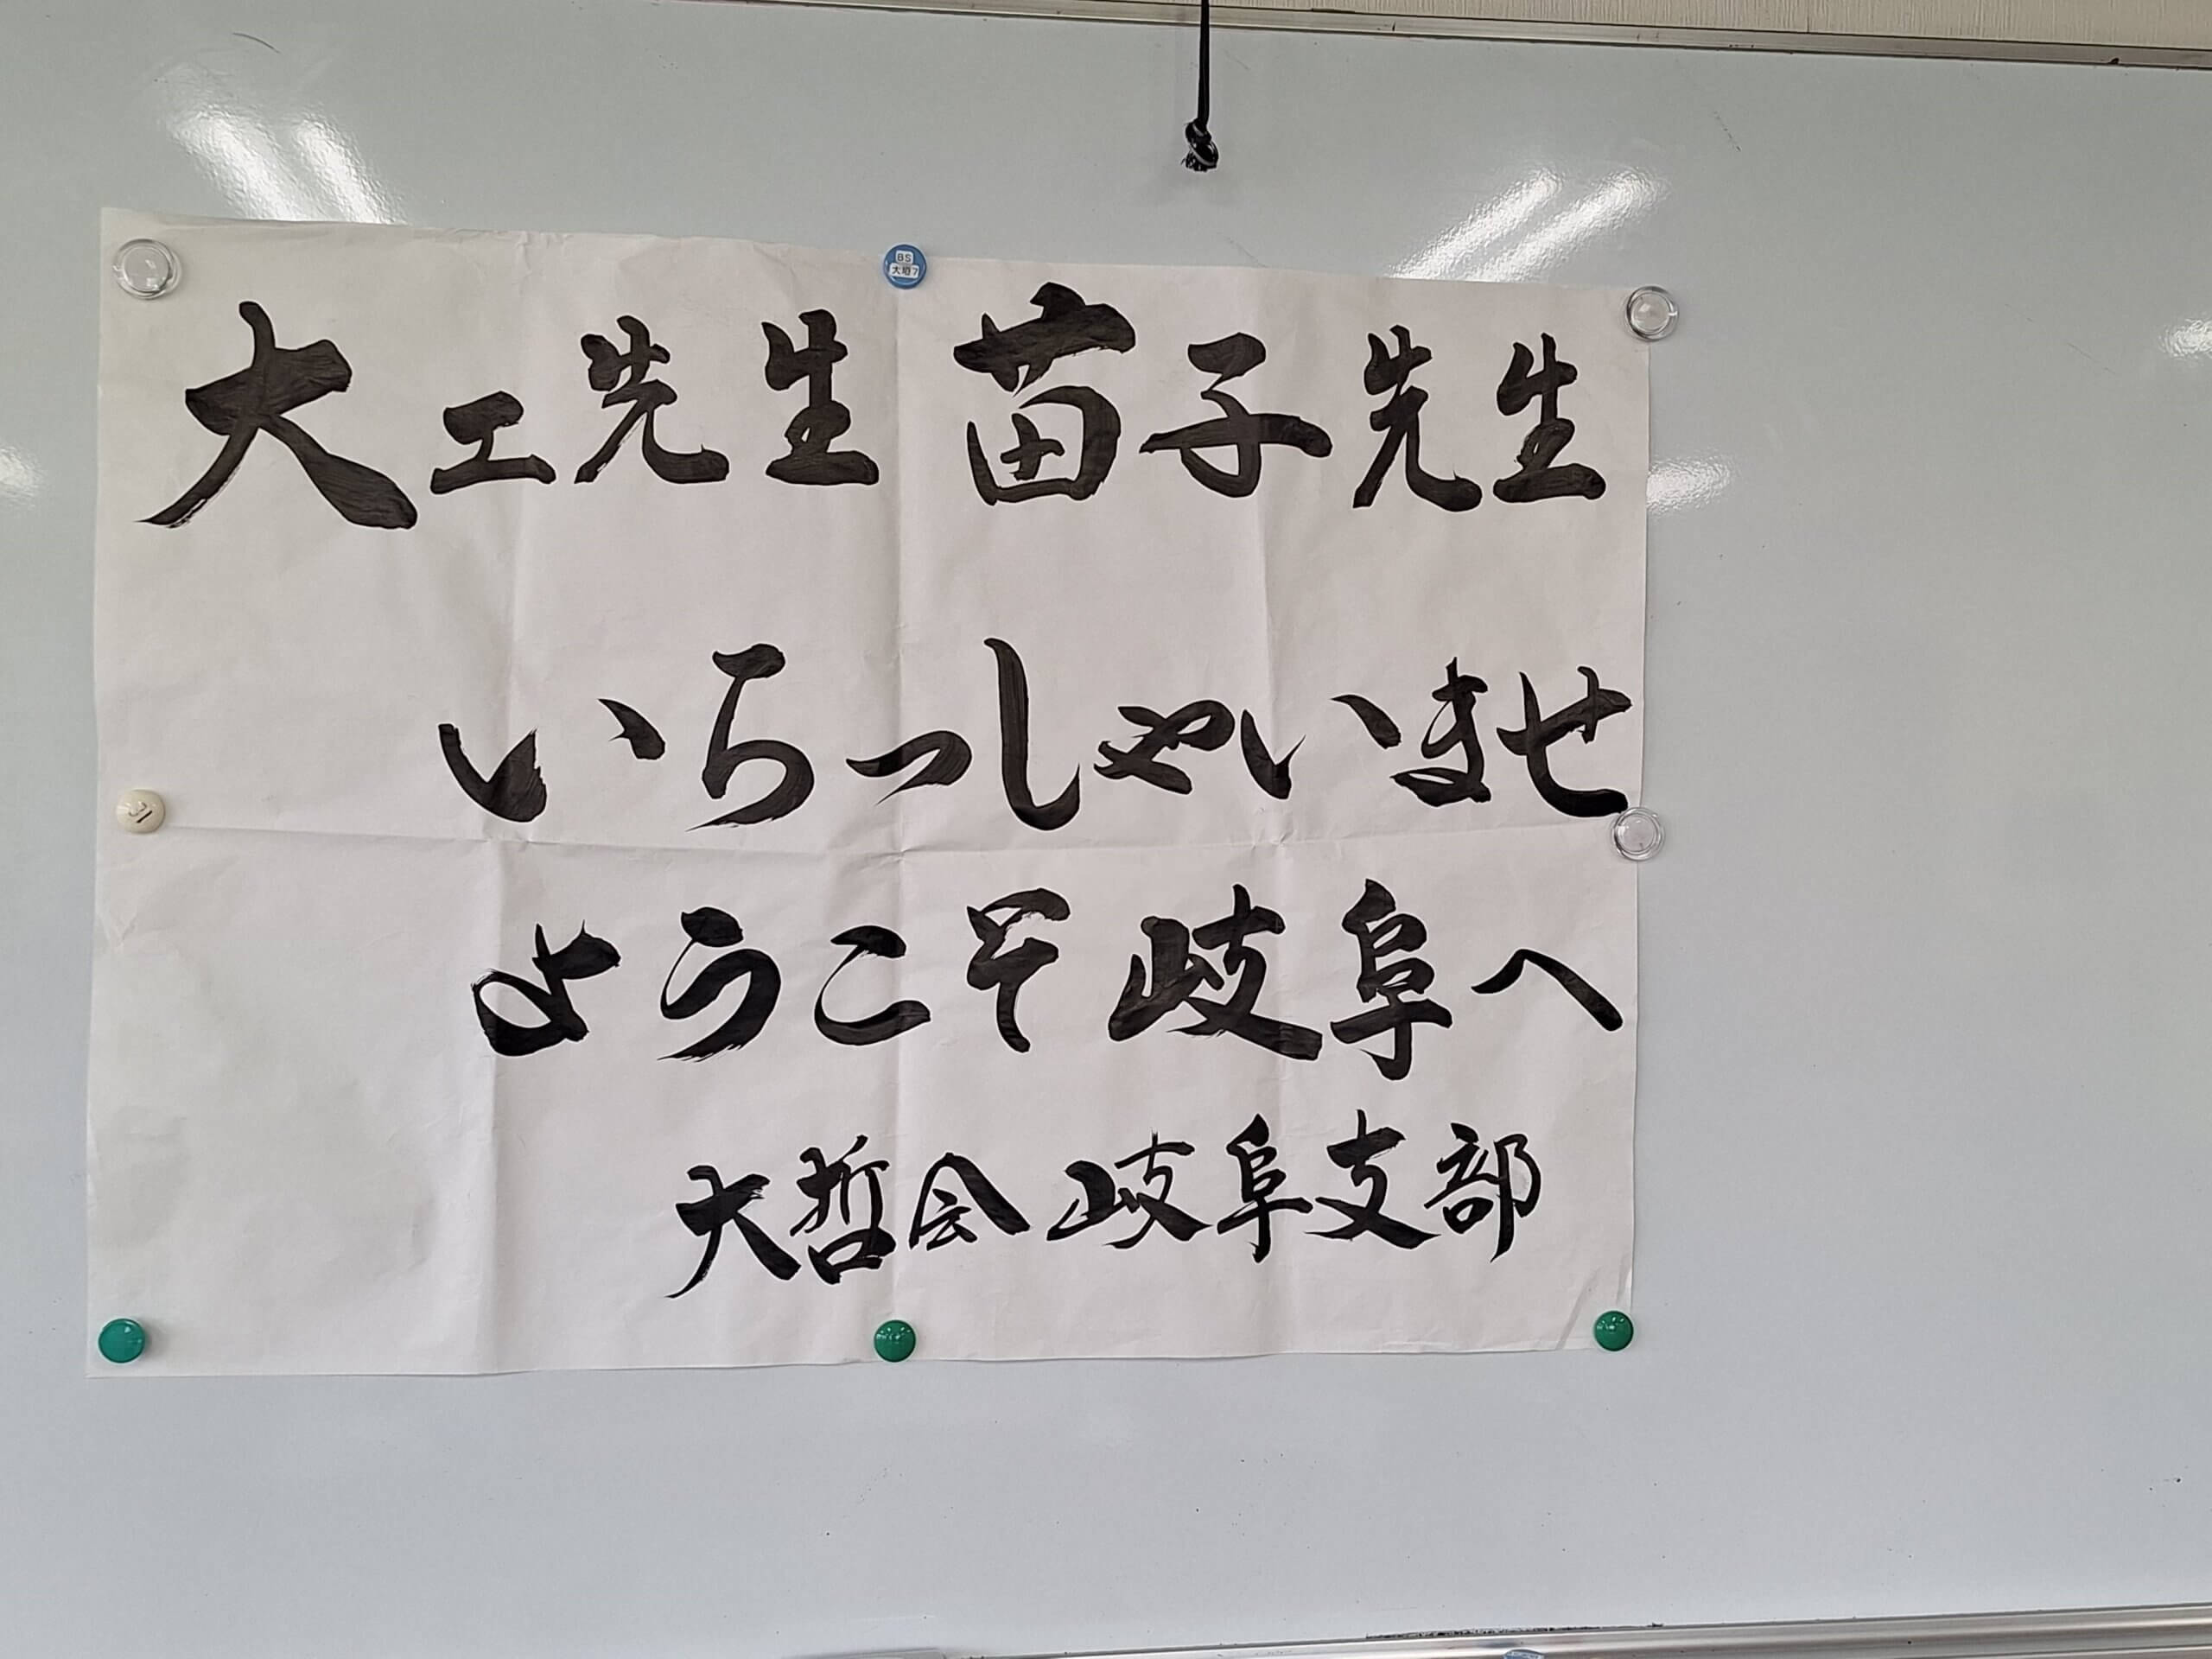 大エ先生 苗子先生
いらっしゃいませ
ようこそ岐阜へ
大哲会岐阜支部
BS
大垣7